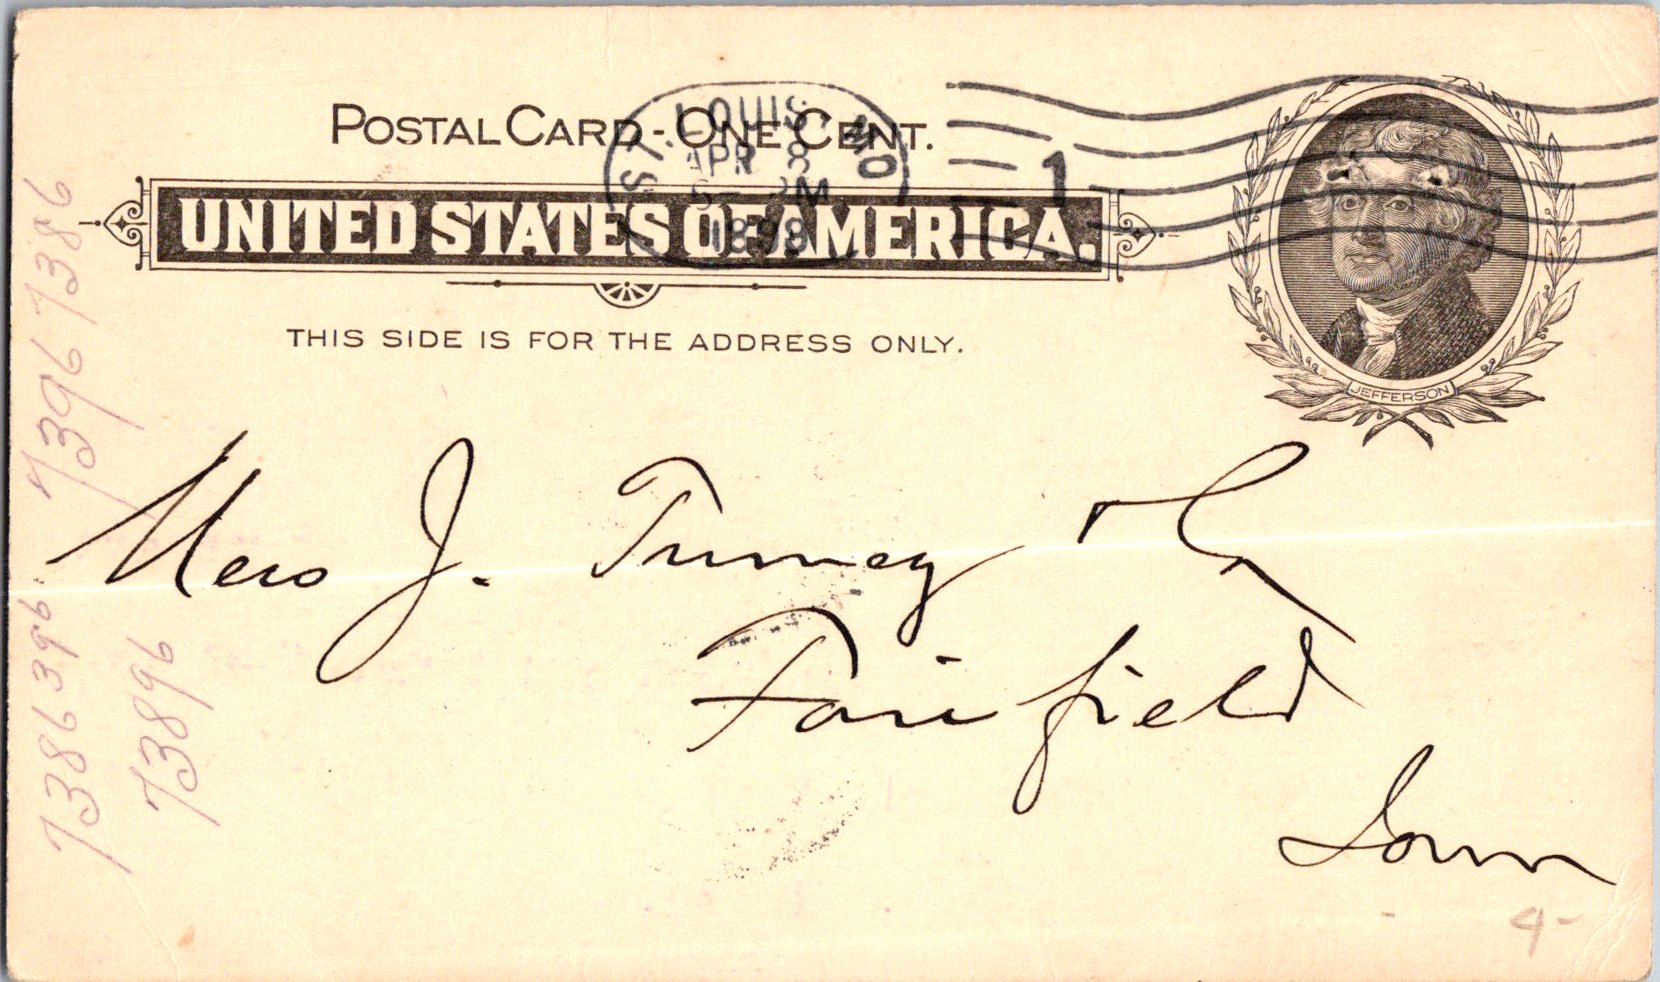 POSTAL CARD - ONE CENT.
UNITED STATES OF AMERICA.
THIS SIDE IS FOR THE ADDRESS ONLY.
ST. LOUIS, MO
APR 8
PM
1898
1
JEFFERSON
Mess J. Turney & Co
Fairfield
Iowa
7396 7386
7386396
73896
4-